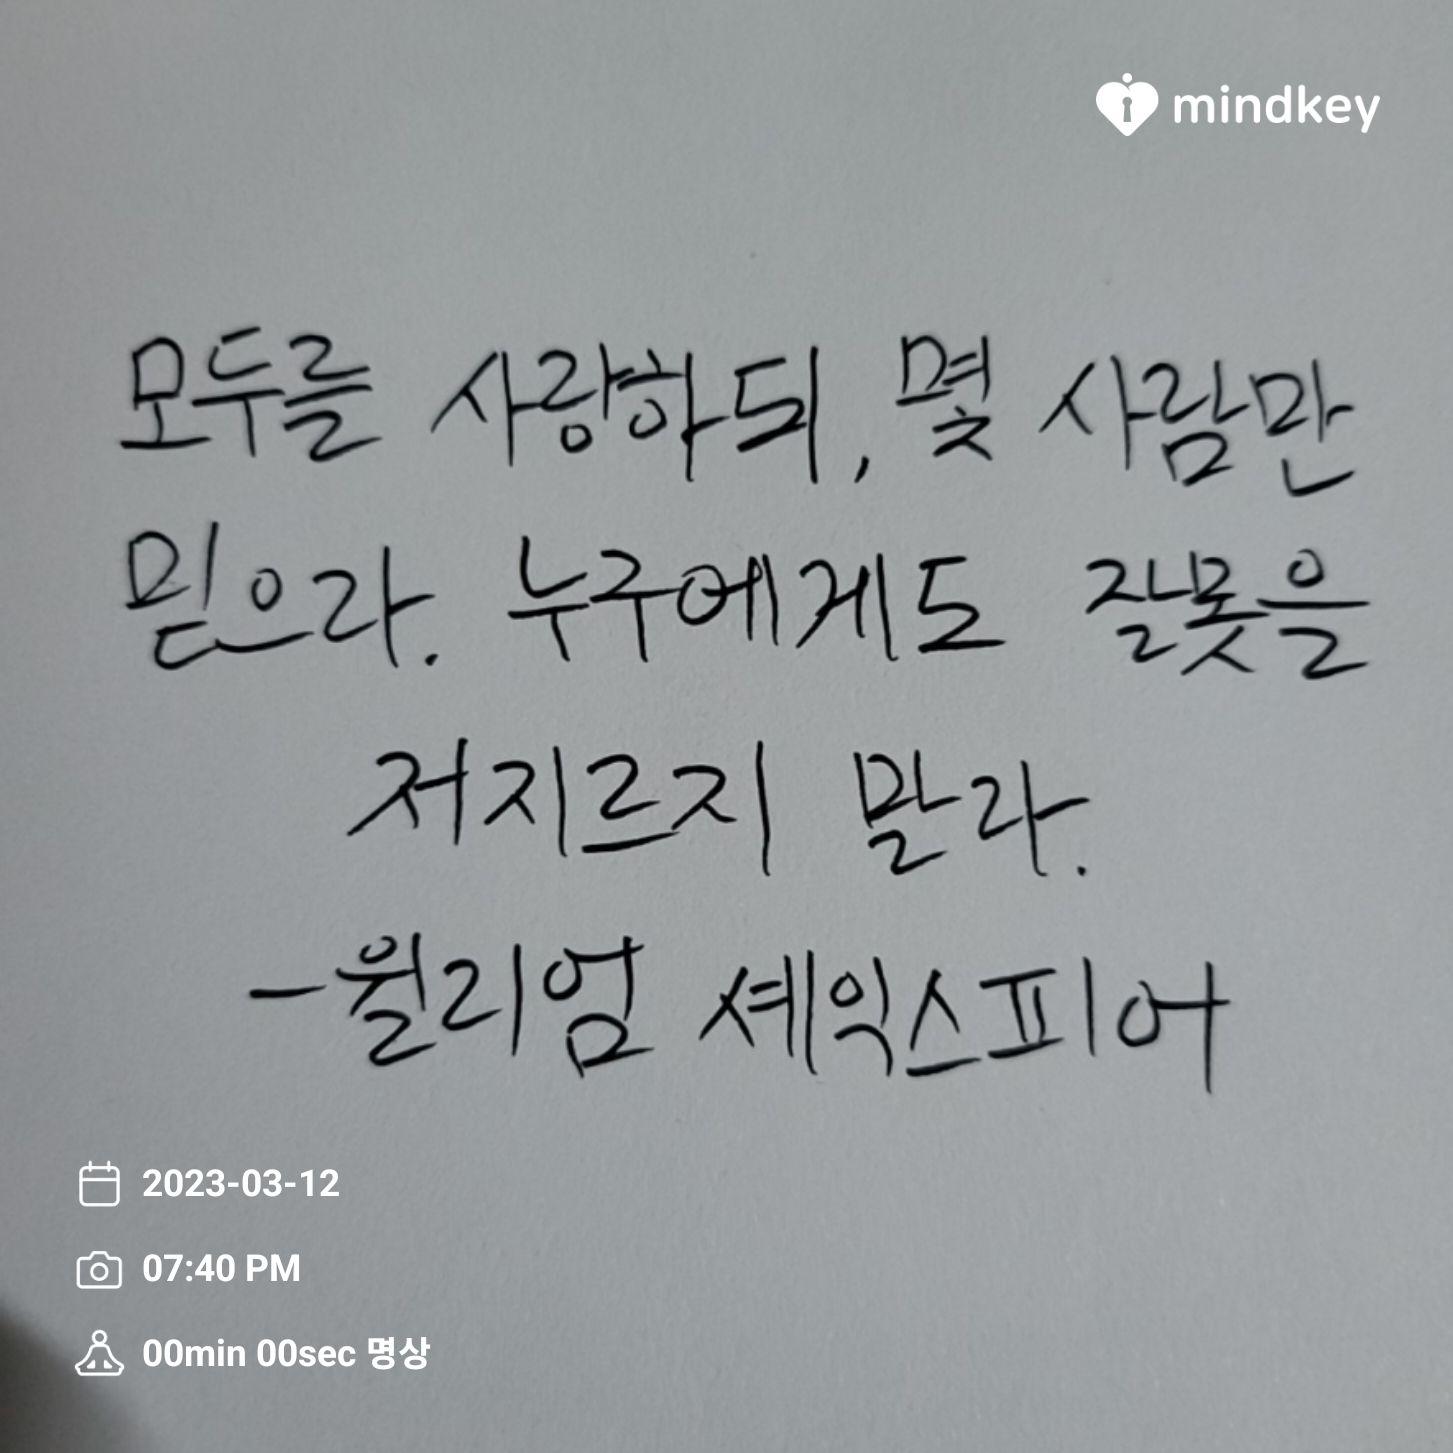 mindkey
모두를 사랑하되, 몇 사람만
믿으라. 누구에게도 잘못을
저지르지 말라.
-윌리엄 셰익스피어
2023-03-12
07:40 PM
00min 00sec 명상